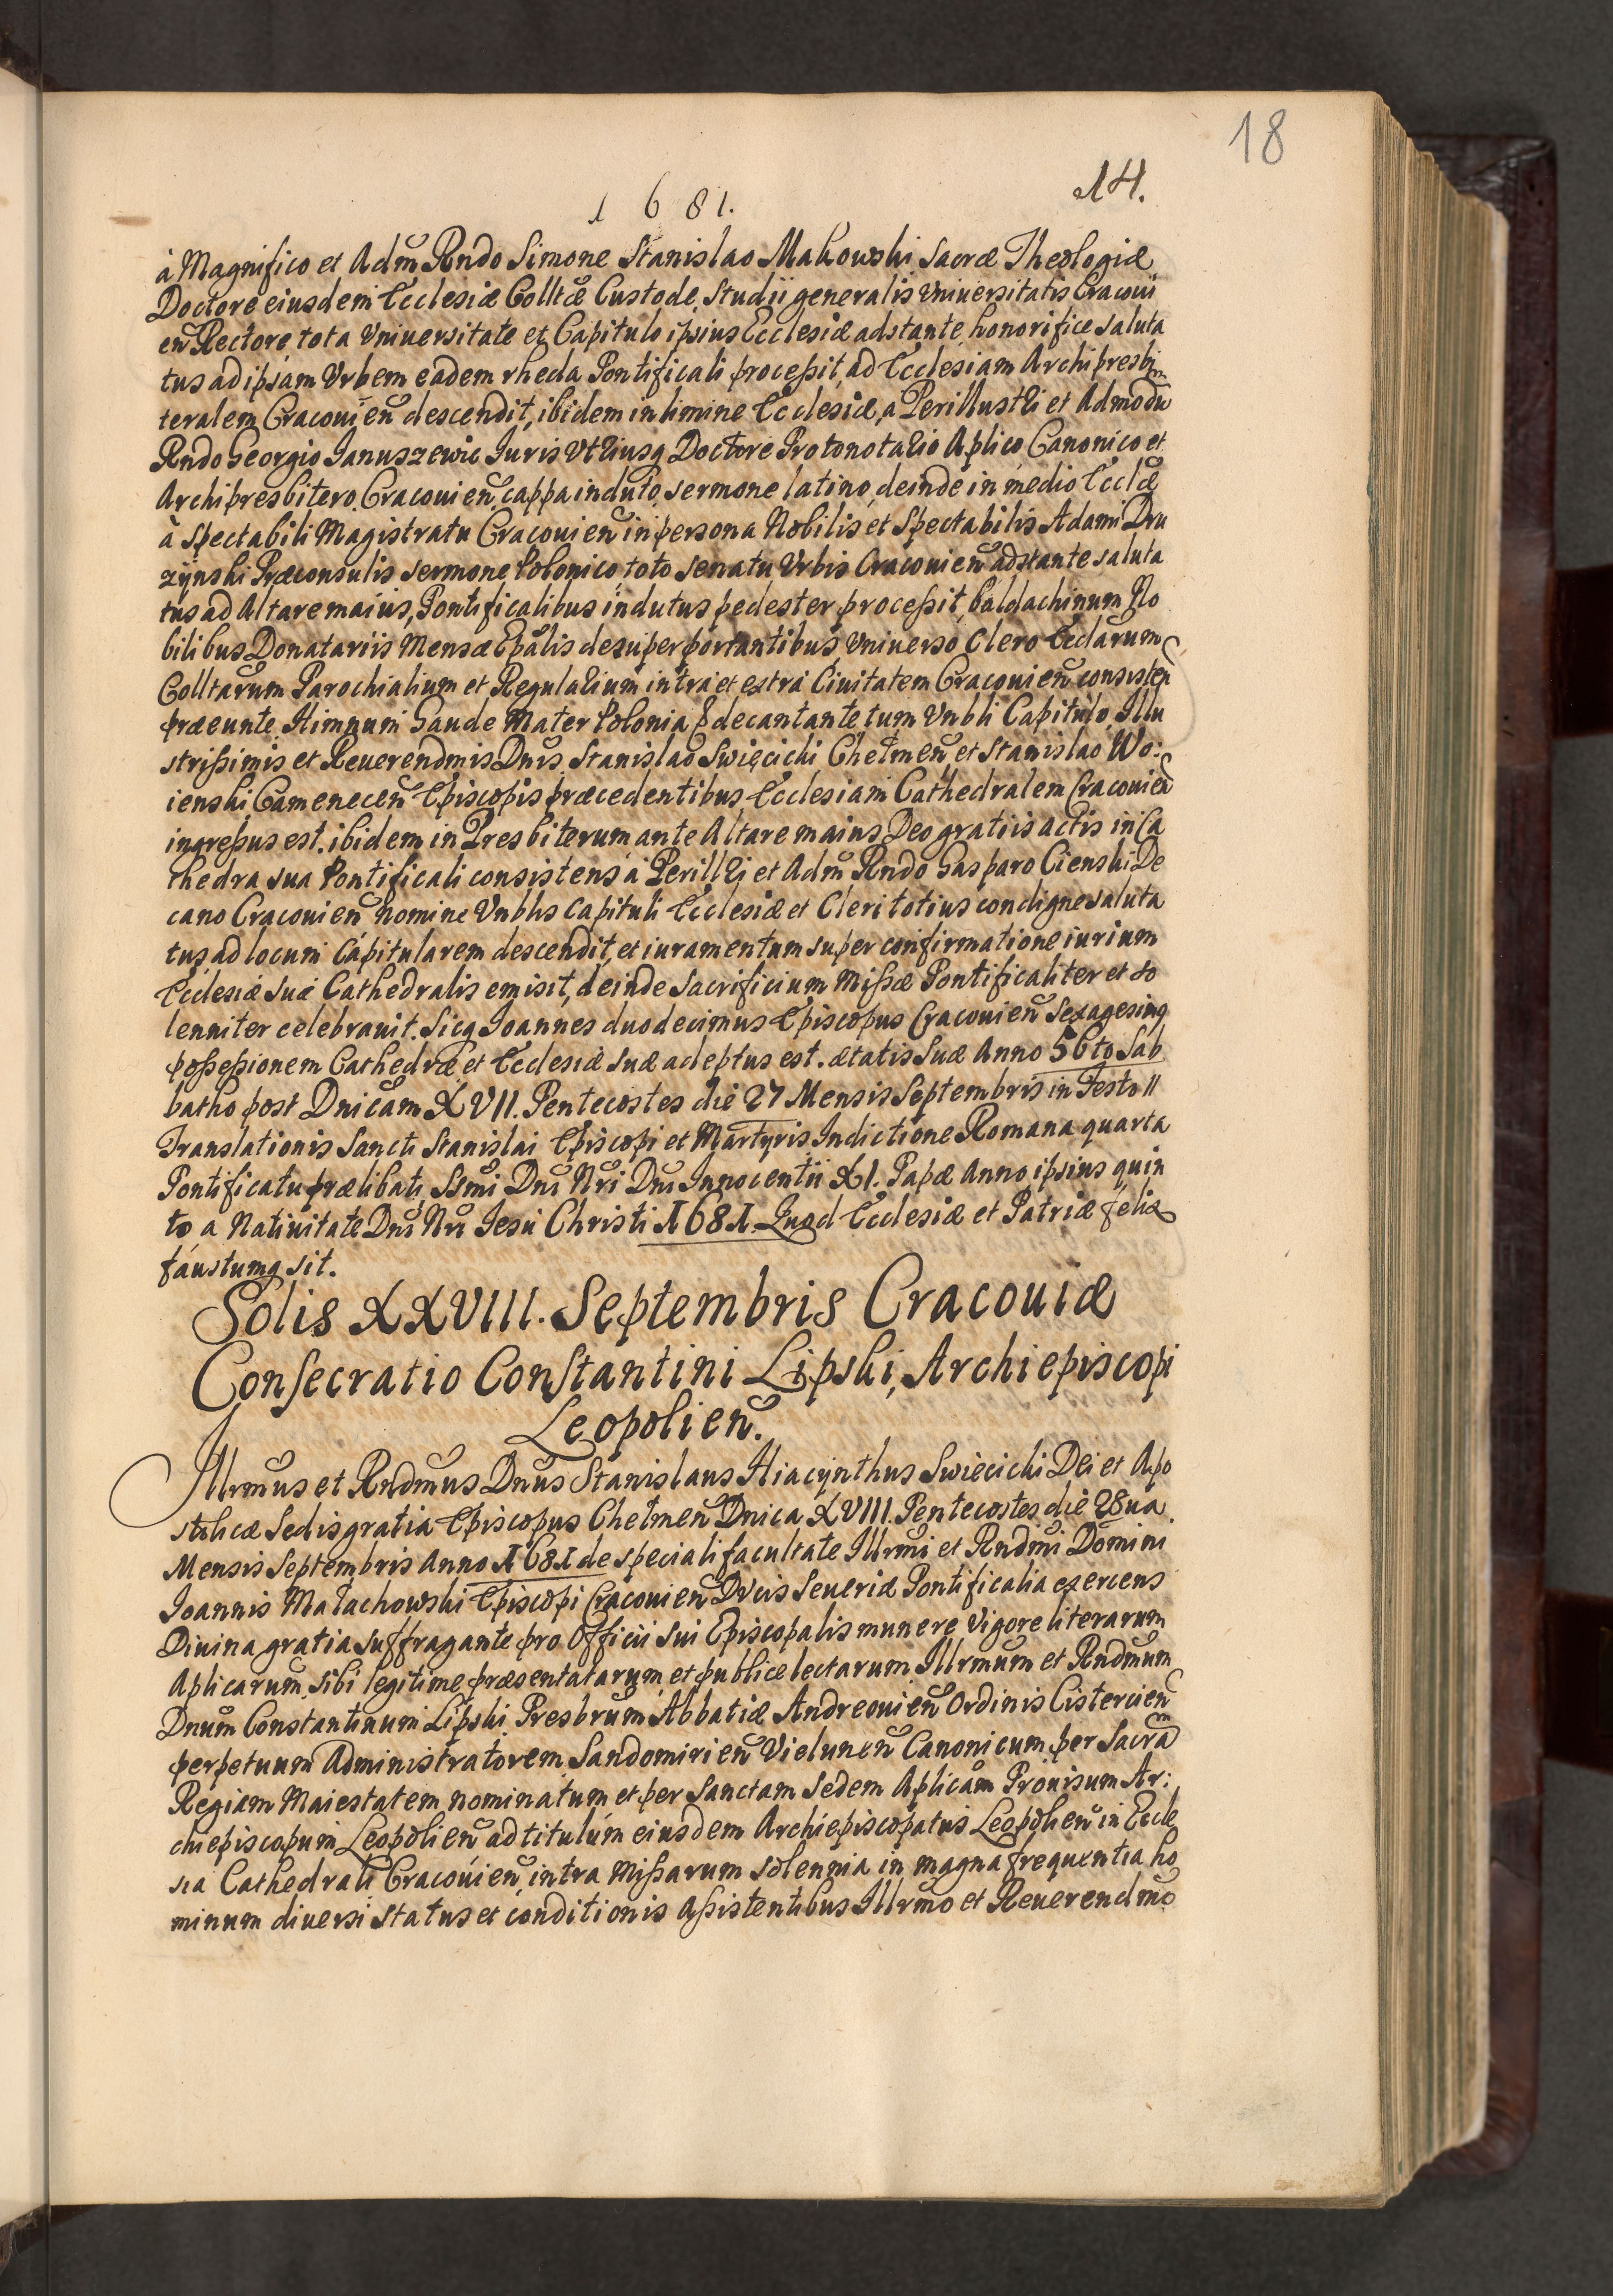 18
14.
1 6 81.
à Magnifico et Adm̃ Rndo Simone Stanislao Makowski Sacræ Theologiæ
Doctore eiusdem Ecclesiæ Colltæ Custode, Studii generalis Vniuersitatis Cracoui
eñ Rectore tota Vniuersitate et Capitulo ipsius Ecclesiæ adstante, honorifice saluta
tus ad ipsam Vrbem eadem rheda Pontificali proceßit, ad Ecclesiam Archipresbi
teralem Cracouieñ descendit, ibidem in limine Ecclesiæ, a Perillustri et Admodũ
Rndo Georgio Januszewic Juris Vtriusq Doctore Protonotario Aplico Canonico et
Archipresbitero Cracouieñ cappa induto sermone latino, deinde in medio Ecclæ
à Spectabili Magistratu Cracouieñ in persona Nobilis et Spectabilis Adami Dru
zynski Præconsulis sermone Polonico, toto Senatu Vrbis Cracouieñ adstante saluta
tus ad Altare maius, Pontificalibus indutus pedester proceßit, baldachinum No
bilibus Donatariis Mensæ Epalis desuper portantibus Vniuerso Clero Ecclarum
Colltarum Parochialium et Regularium intra et extra Ciuitatem Cracouieñ consisteñ
præeunte, Himnum Gaude Mater Polonia &c decantante tum Vnbli Capitulo, Illu
strißimis et Reuerendmis Dnis Stanislao Swięcicki Chełmeñ et Stanislao Wo:
ienski Cameneceñ Episcopis præcedentibus, Ecclesiam Cathedralem Cracouieñ
ingreßus est. ibidem in Presbiterum ante Altare maius, Deo gratiis actis in Ca
thedra sua Pontificali consistens à Perillri et Adm̃ Rndo Gasparo Cienski De
cano Cracouieñ Nomine Vnblis Capituli Ecclesiæ et Cleri totius condigne saluta
tus, ad locum Capitularem descendit, et iuramentum super confirmatione iurium
Ecclesiæ suæ Cathedralis emisit, deinde Sacrificium Mißæ Pontificaliter et so
lenniter celebrauit. Sicq Joannes duodecimus Episcopus Cracouieñ Sexagesimq
poßeßionem Cathedræ et Ecclesiæ suæ adeptus est. ætatis Suæ Anno 56to Sab
batho post Dnicam XVII. Pentecostes die 27 Mensis Septembris in Festo
Translationis Sancti Stanislai Episcopi et Martyris Indictione Romana quarta
Pontificatu prælibati SSmi Dni Nri Dni Innocentii XI. Papæ Anno ipsius quin
to a Natiuitate Dni Nri Jesu Christi 1681. Quod Ecclesiæ et Patriæ felix
faustumq sit.
Solis XXVIII. Septembris Cracouiæ
Consecratio Constantini Lipski, Archiepiscopi
Leopolieñ.
Illrmus et Rndmus Dnus Stanislaus Hiacynthus Swiecicki Dei et Apo
stolicæ Sedis gratia Episcopus Chełmeñ Dnica XVIII. Pentecostes die 28ua
Mensis Septembris Anno 1681 de speciali facultate Illrmi et Rndmi Domini
Joannis Małachowski Episcopi Cracouieñ Ducis Seueriæ Pontificalia exercens
Diuina gratia suffragante pro Officii sui Episcopalis munere, Vigore literarum
Aplicarum, sibi legitime præsentatarum et publice lectarum Illrmum et Rndmum
Dnum Constantinum Lipski Presbrum Abbatiæ Andreouieñ Ordinis Cistercieñ
perpetuum Administratorem Sandomirieñ Vieluneñ Canonicum per Sacrã
Regiam Maiestatem nominatum et per Sanctam Sedem Aplicam Prouisum Ar:
chiepiscopum Leopolieñ ad titulum eiusdem Archiepiscopatus Leopolieñ in Eccle
sia Cathedrali Cracouieñ, intra Mißarum solennia in magna frequentia ho
minum diuersi status et conditionis Aßistentibus Illrmo et Reuerendmo